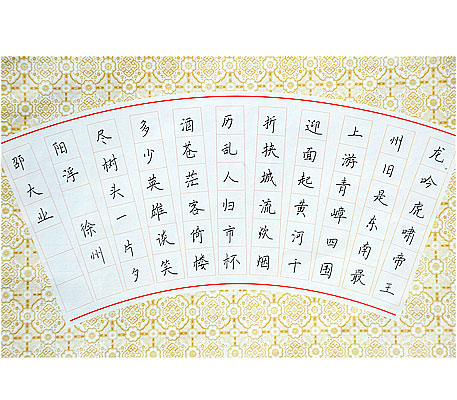 龙吟虎啸帝王
州旧是东南最
上游青嶂四围
迎面起黄河千
折挟城流炊烟
历乱人归市杯
酒苍茫客倚楼
多少英雄谈笑
尽树头一片夕
阳浮 徐州
邵大业